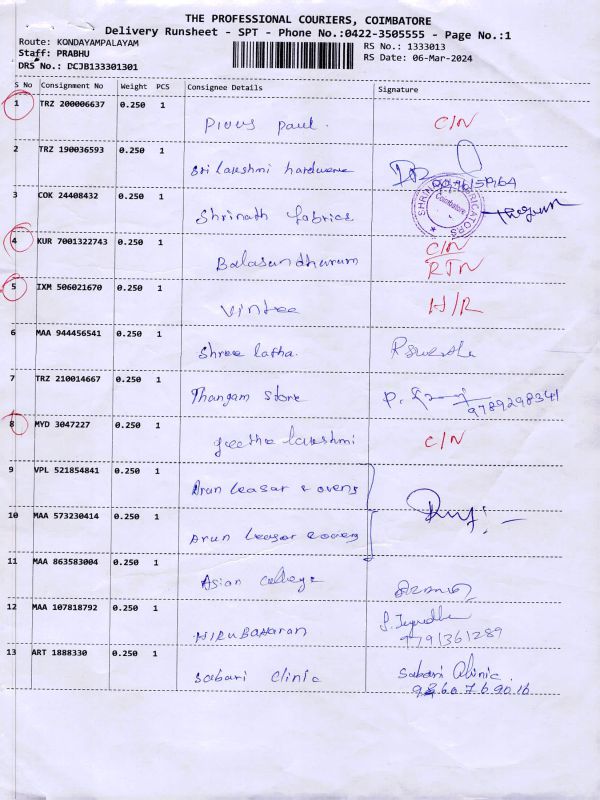 THE PROFESSIONAL COURIERS, COIMBATORE
Delivery Runsheet - SPT - Phone No.:0422-3505555 - Page No.:1
Route: KONDAYAMPALAYAM
RS No.: 1333013
Staff: PRABHU
RS Date: 06-Mar-2024
DRS No.: DCJB133301301
S No Consignment No Weight PCS Consignee Details Signature
1 TRZ 200006637 0.250 1 Pious paul. C/N
2 TRZ 190036593 0.250 1 Sri Lakshmi hardware
3 COK 24408432 0.250 1 Shrinath fabrics
Coimbatore
4 KUR 7001322743 0.250 1 Balasundharam C/N
RTN
5 IXM 506021670 0.250 1 Vintee H/R
6 MAA 944456541 0.250 1 Shree latha.
7 TRZ 210014667 0.250 1 Thangam Store P.
9789298341
8 MYD 3047227 0.250 1 geetha lakshmi C/N
9 VPL 521854841 0.250 1 Arun Leasar & ovens
10 MAA 573230414 0.250 1 Arun Leasor
11 MAA 863583004 0.250 1 Asian college
12 MAA 107818792 0.250 1 HIRUBAHARAN
9791361289
13 ART 1888330 0.250 1 Sabari Clinic Sabari Clinic